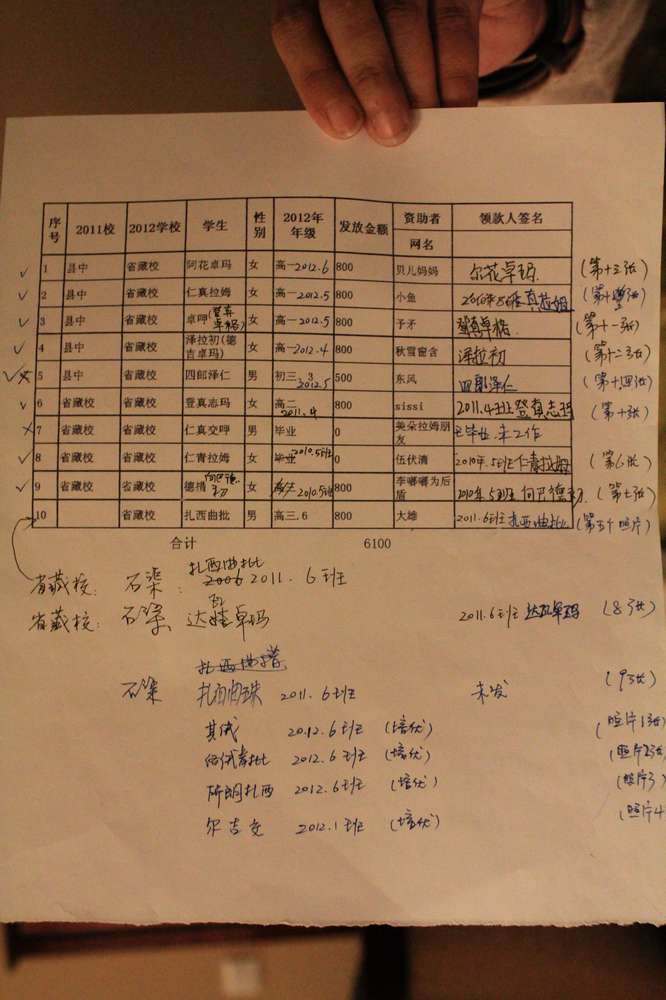 序号 2011校 2012学校 学生 性别 2012年年级 发放金额 资助者网名 领款人签名
✓ 1 县中 省藏校 阿花卓玛 女 高一2012.6 800 贝儿妈妈 尔花卓玛 (第十三张)
✓ 2 县中 省藏校 仁真拉姆 女 高一2012.5 800 小鱼 真拉姆
✓ 3 县中 省藏校 卓呷 女 高一2012.5 800 予矛 (第十一张)
✓ 4 县中 省藏校 泽拉初(德吉卓玛) 女 高一2012.4 800 秋雪窗含 泽拉初 (第十二张)
5 县中 省藏校 四郎泽仁 男 初三.3 2012.5 500 东风 四郎泽仁 (第十四张)
✓ 6 省藏校 省藏校 登真志玛 女 高二 2011.4 800 sissi 2011.4班登真志玛 (第十张)
7 省藏校 省藏校 仁真交呷 男 毕业 0 美朵拉姆朋友 已毕业,未工作
✓ 8 省藏校 省藏校 仁青拉姆 女 毕业2010.5班 0 伍伏清 2010年.5班仁青拉姆 (第6张)
✓ 9 省藏校 省藏校 德措 女 2010.5班 800 李嘟嘟为后盾 2010年5班 (第七张)
10 省藏校 扎西曲批 男 高三.6 800 大雄 2011.6班扎西曲批 (第五个照片)
合计 6100
扎西曲批
省藏校: 石渠: 2006 2011.6班
省藏校: 石渠: 达娃卓玛 2011.6班 达娃卓玛 (8张)
石渠 扎西曲珠 2011.6班 未发 (9张)
其代 2012.6班 (培优) (照片1张
2012.6班 (培优) (照片2张
所朗扎西 2012.6班 (培优) (照片3)
尔吉文 2012.1班 (培优) (照片4